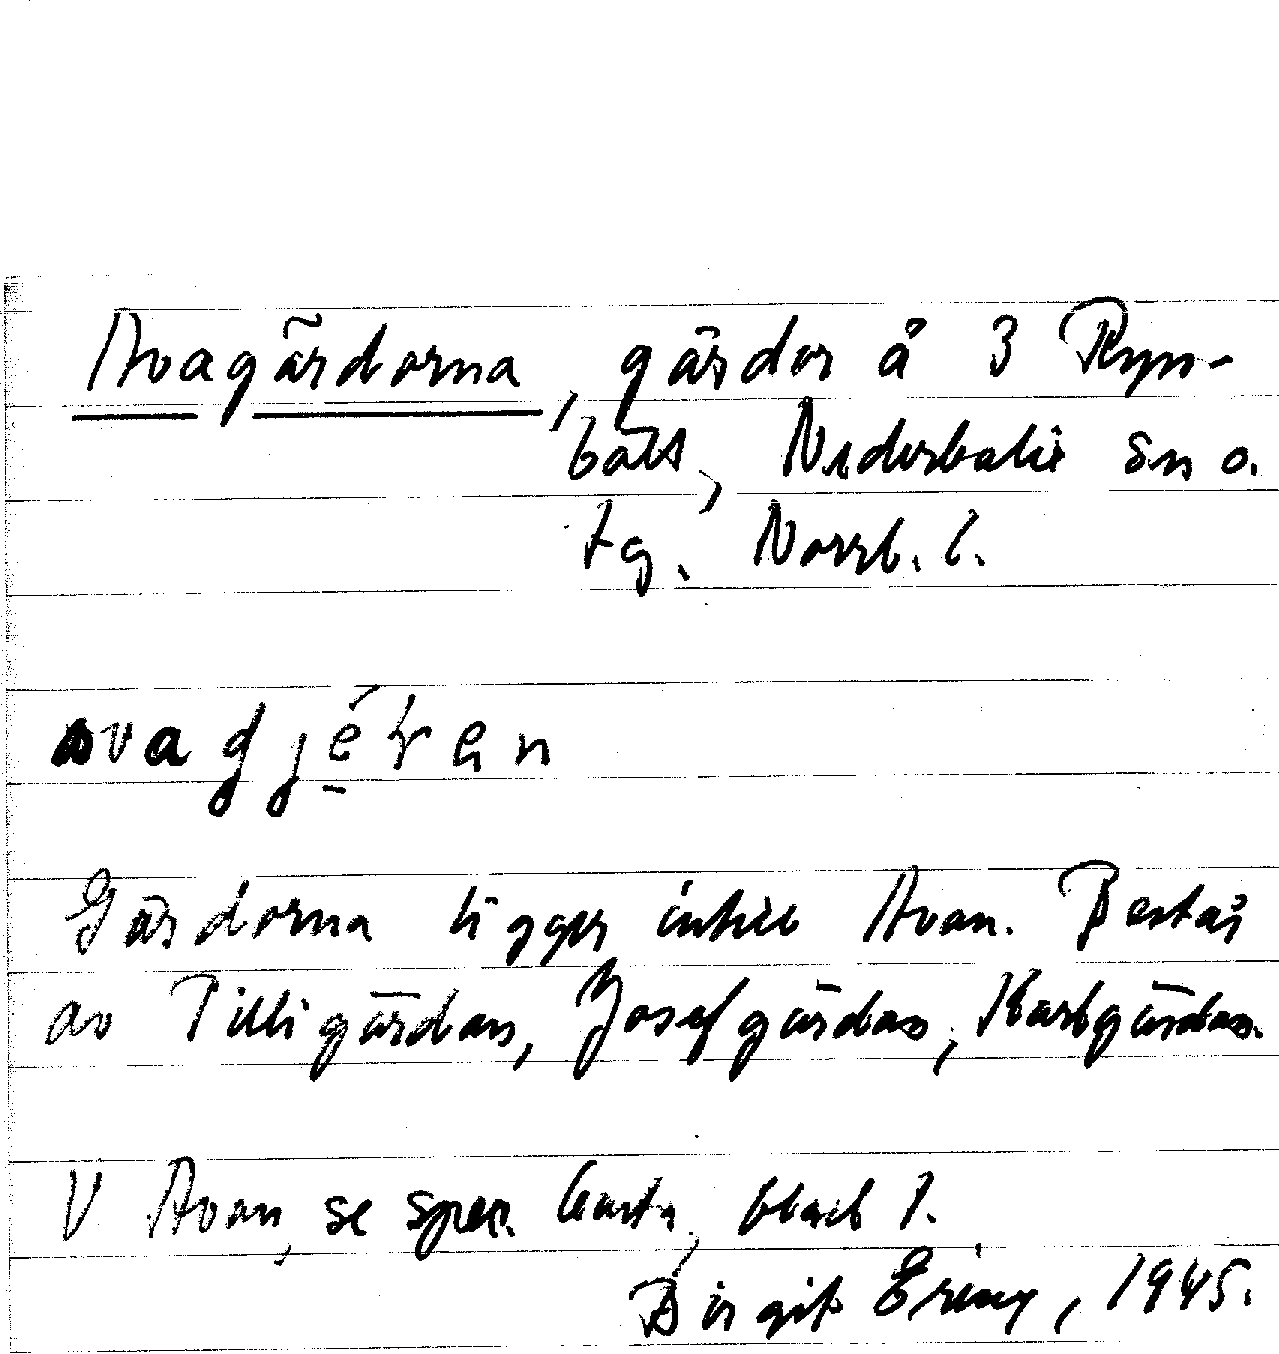 Avagårdarna, gårdar å 3 Ryn-
bäck, Nederkalix sn o.
tg. Norrb. l.
avagjéran
Gårdarna ligger intill Avan. Består
av Pilligården, Josefgården, Karlgården.
V Avan, se spec. karta, blad 1.
Birgit Ericy, 1945.